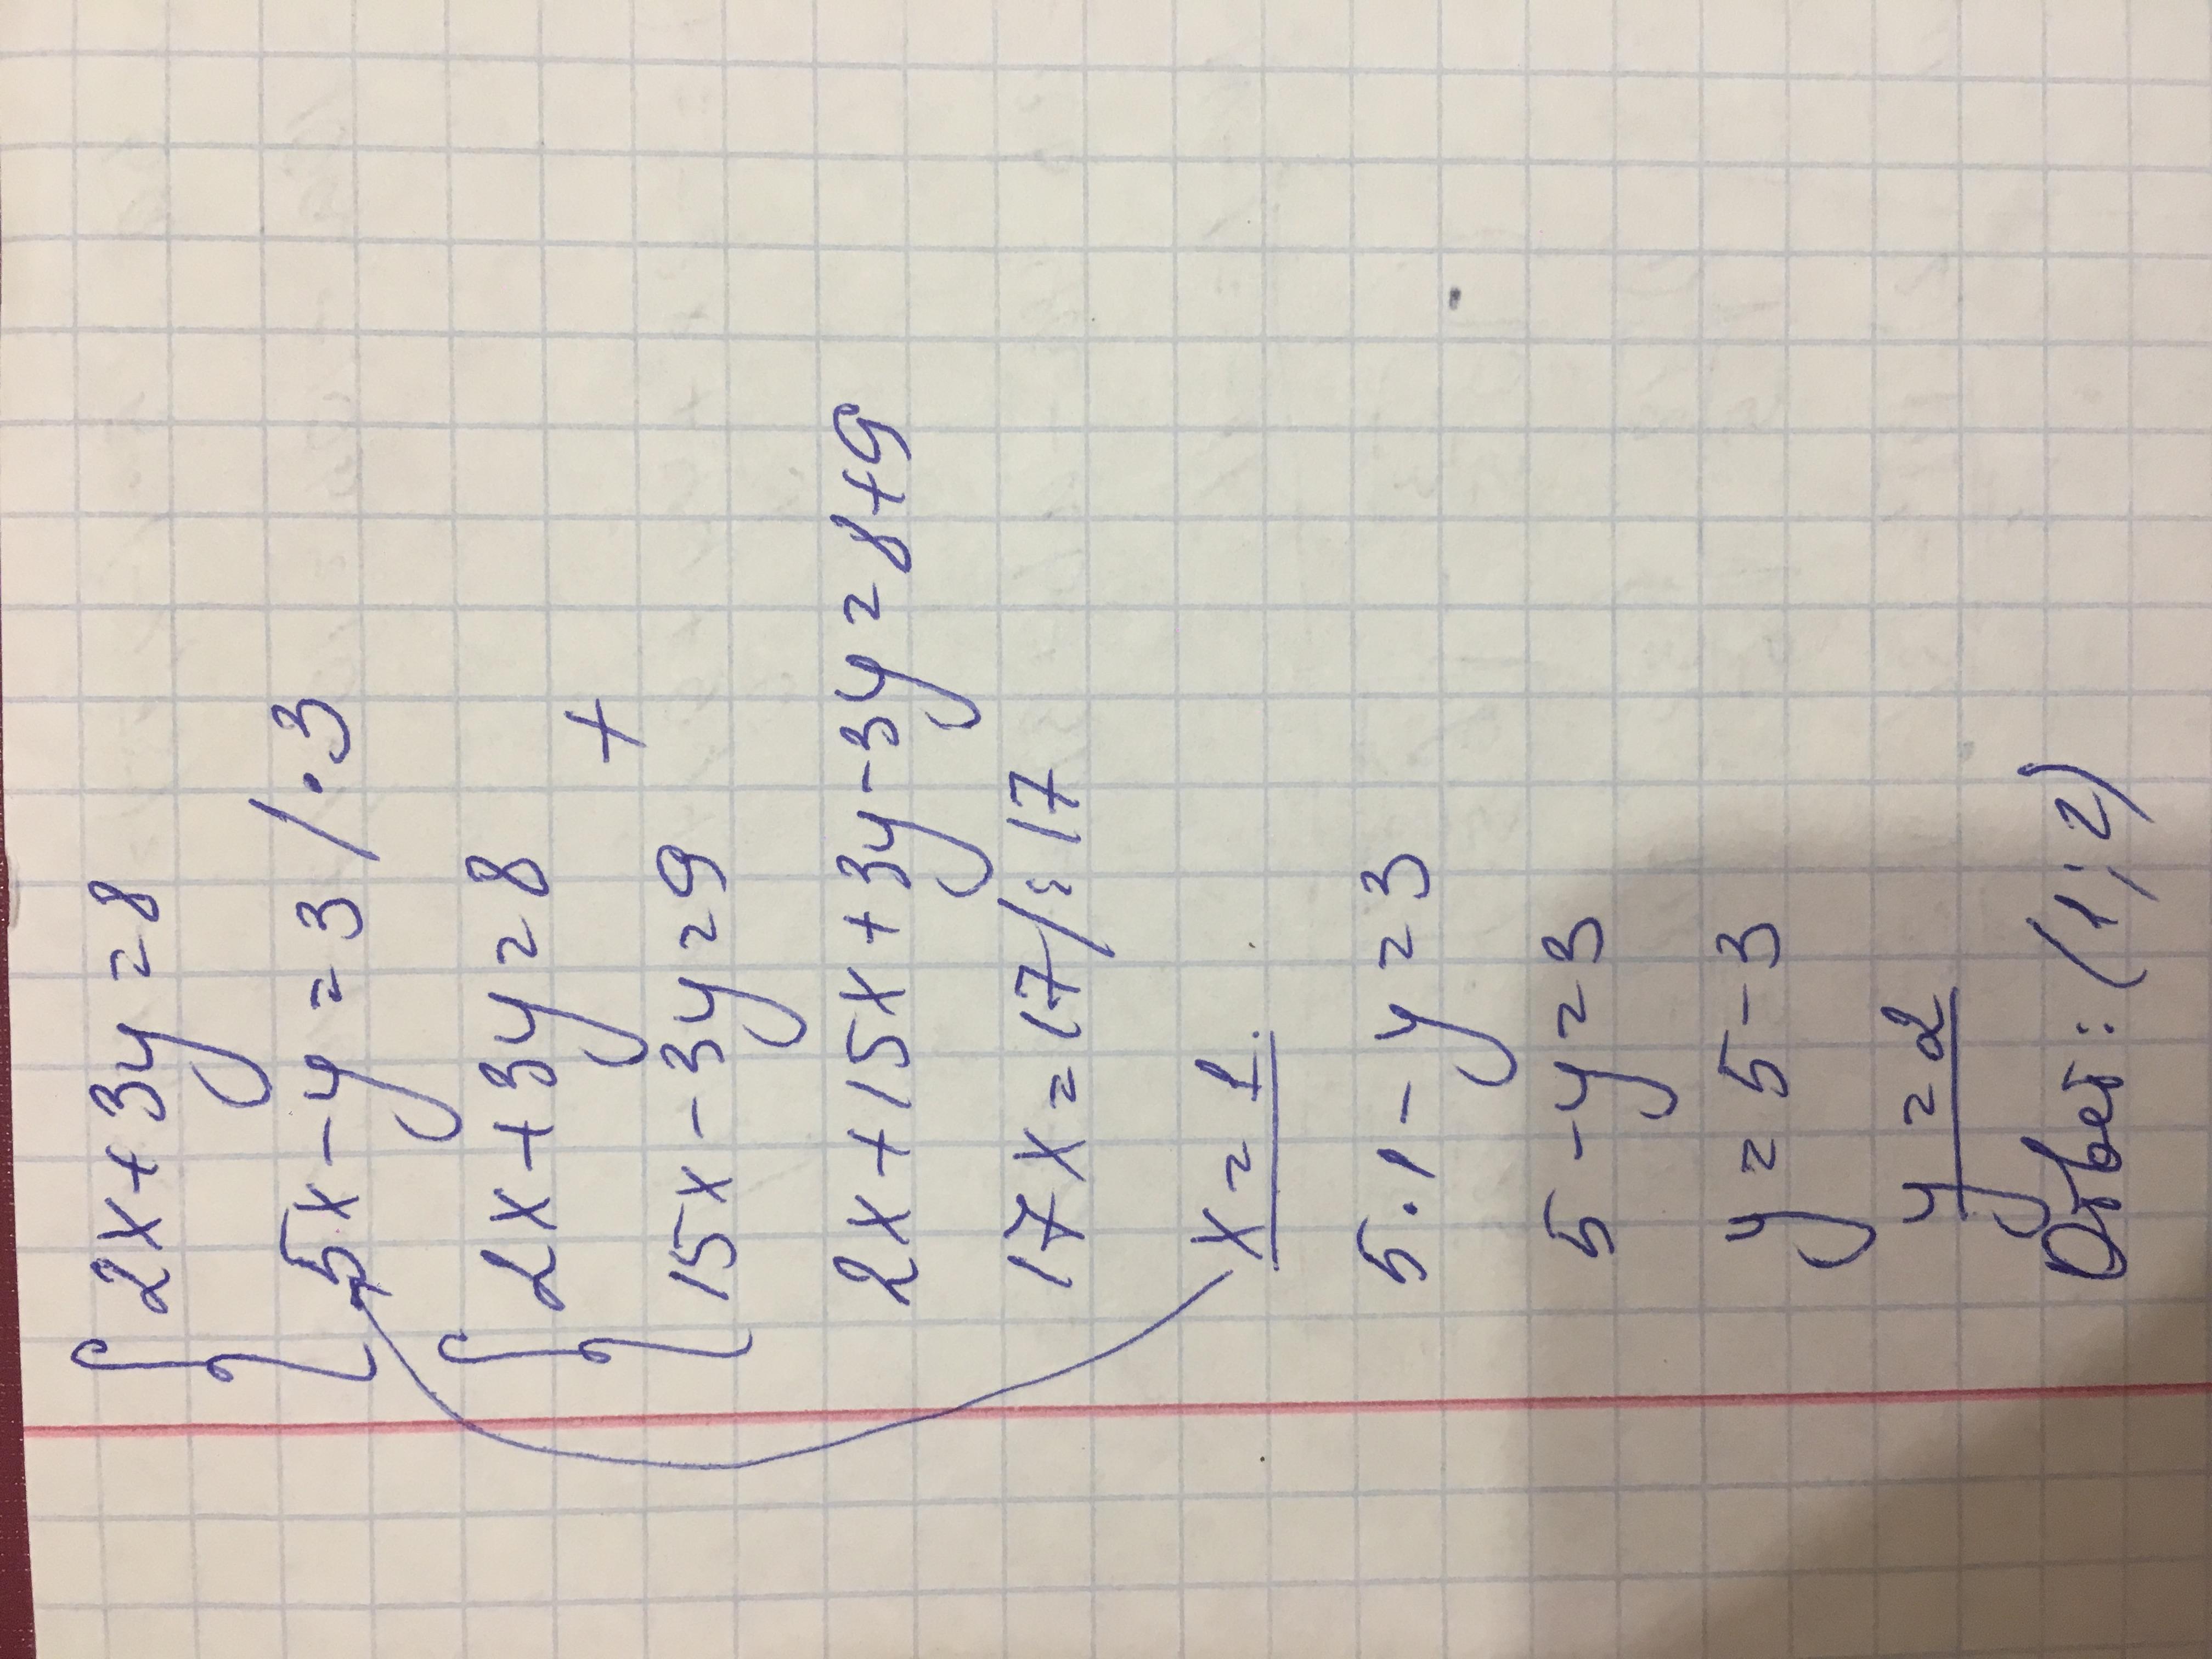 {2x+3y=8
5x-y=3/·3
{2x+3y=8
+
15x-3y=9
2x+15x+3y-3y=8+9
17x=17/:17
x=1
5·1-y=3
5-y=3
y=5-3
y=2
Ответ: (1;2)